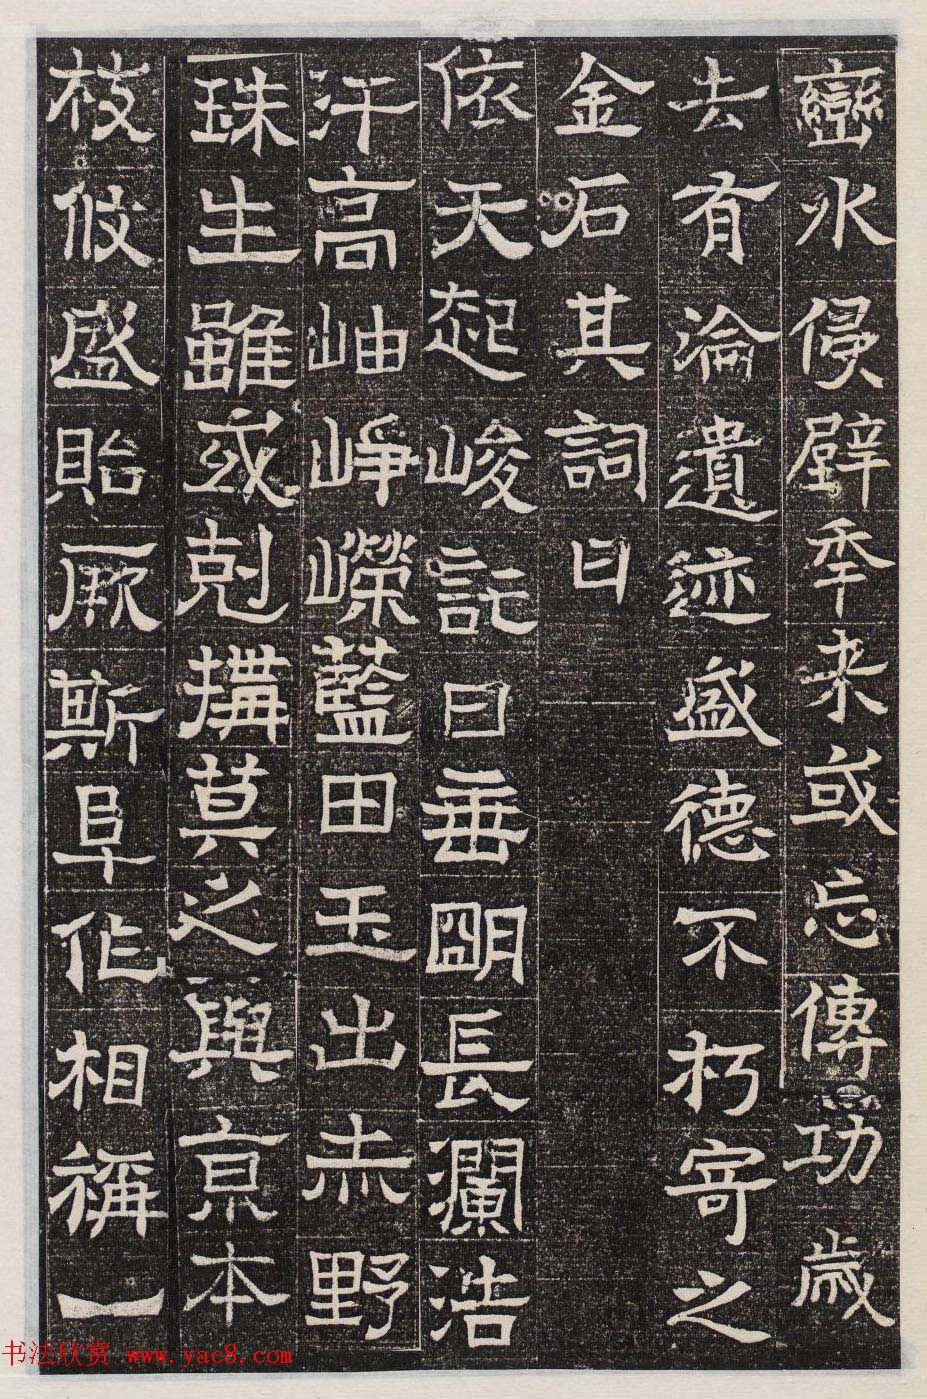 巒水侵壁年来或忘傳功歲
去有淪遺迹盛德不朽寄之
金石其詞曰
依天起峻託日垂明長瀾浩
汗高岫崢嶸藍田玉出赤野
珠生雖或剋搆莫之與京本
枝攸盛貽厥斯阜作相稱一
书法欣赏 www.yac8.com